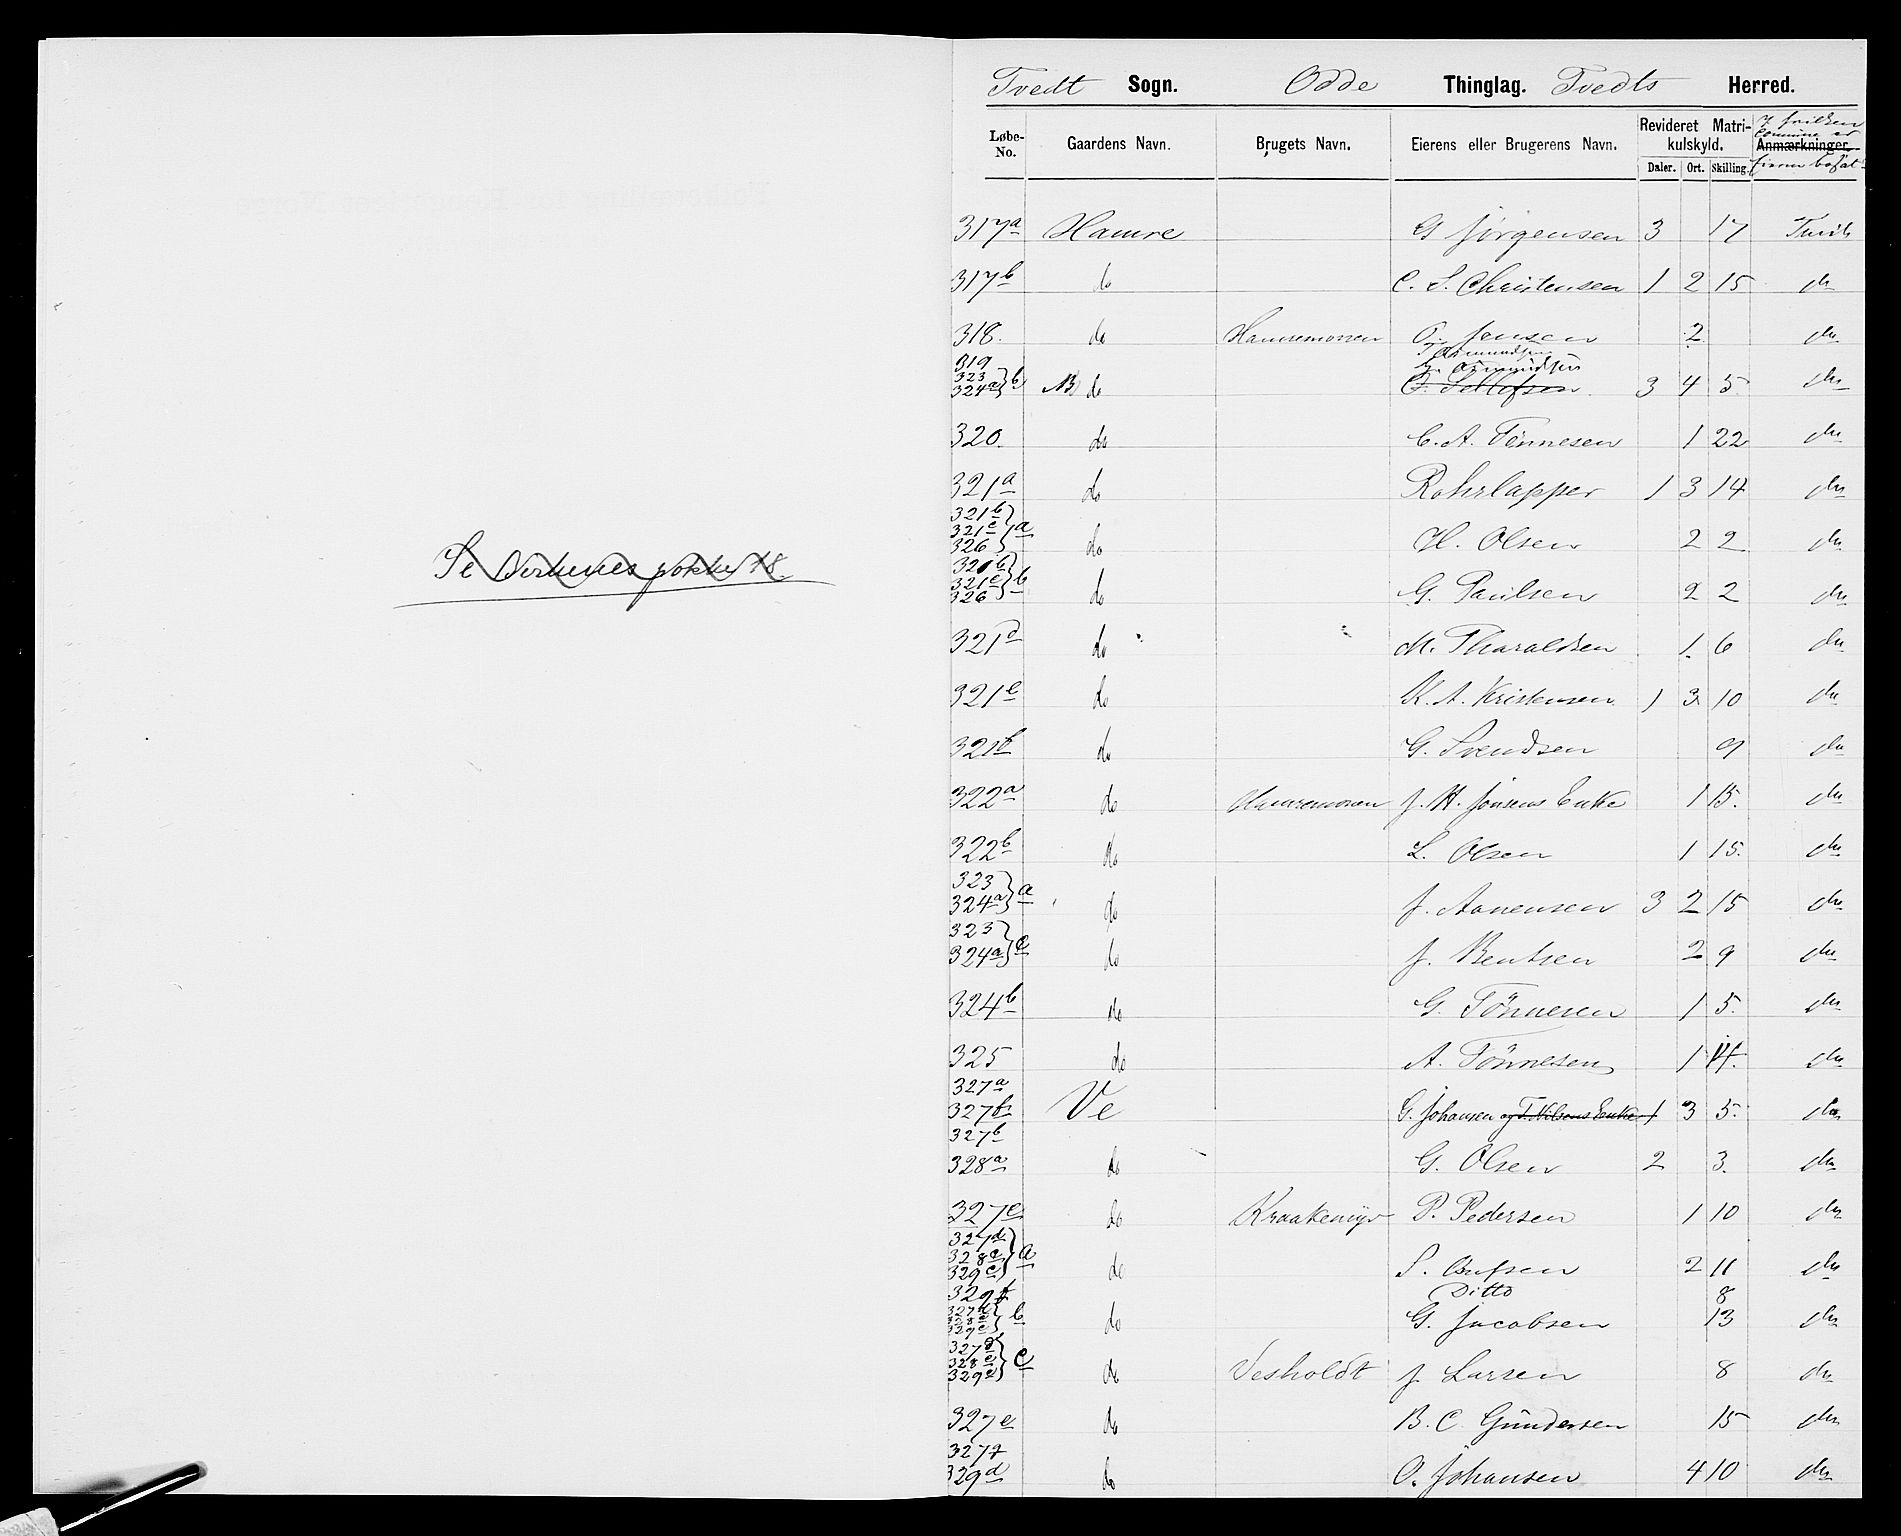 Se Birkenes pakke 18.
Tvedt Sogn. Odde Thinglag. Tvedts Herred.
Løbe-No. Gaardens Navn. Brugets Navn. Eierens eller Brugerens Navn. Revideret Matrikulskyld. Daler. Ort. Skilling. I hvilken Commune er Anmærkninger. Eieren bosat
317a Hamre G Jørgensen 3 17 Tveit
317b do C. S. Christensen 1 2 15 do
318. do Hamremoren O. Jensen 2 do
319 323 324a } b NB do T Aamundsen G. Aamundsen O. Sellefsen 3 4 5 do
320. do C. A. Tønnesen 1 22 do
321a do Rohrlapper 1 3 14 do
321b 321c 326 } a do H. Olsen 2 2 do
321b 321c 326 } b do G. Paulsen 2 2 do
321d do M. Tharaldsen 1 6 do
321e do K. A. Kristensen 1 3 10 do
321f do G. Svendsen 9 do
322a do Hamremoren J. H. Jonsens Enke 1 15. do
322b do L. Olsen 1 15. do
323 324a } a do J. Aanensen 3 2 15 do
323 324a } c do J. Bentsen 2 9 do
324b do G. Tönnesen 1 5. do
325 do A. Tönnesen 1 14. do
327a 327b Ve G. Johansen og T. Nilsens Enke 1 3 5. do
327b 328a do G. Olsen 2 3. do
327c do Kraakemyr P. Pedersen 1 10 do
327d 328c 329c } a do S. 2 11 do
329f Ditto 8
327d 328c 329c } b do G. Jacobsen 13 do
327d 328c 329c } c do Vesholdt J Larsen 8 do
327e do B. C. Gundersen 15 do
327f 329d do O. Johansen 4 10 do